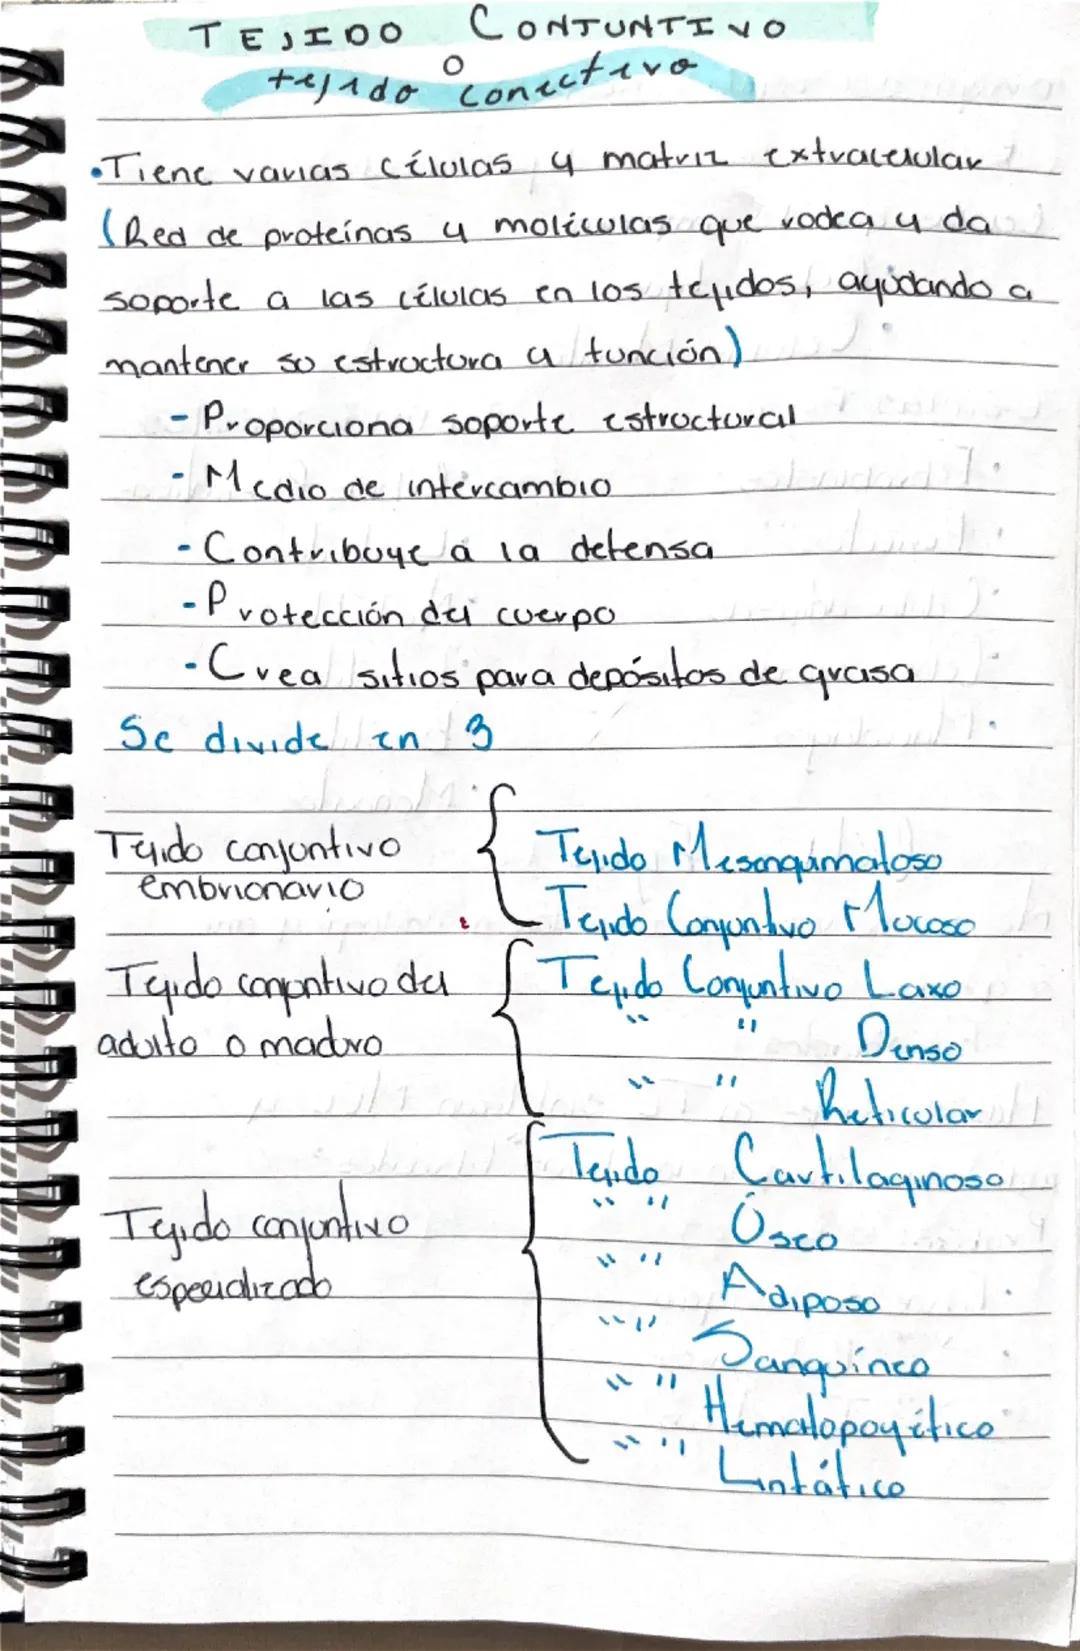 TEJIDO CONJUNTIVO
o
tejido conectivo
•Tiene varias células y matriz extracelular
(Red de proteínas y moléculas que rodea y da
soporte a las células en los tejidos, ayudando a
mantener su estructura y función)
- Proporciona soporte estructural
- Medio de intercambio
- Contribuye a la defensa
- Protección del cuerpo
- Crea sitios para depósitos de grasa
Se divide en 3
Tejido conjuntivo
embrionario
Tejido Mesenquimatoso
Tejido Conjuntivo Mucoso
Tejido conjuntivo del
adulto o maduro
Tejido Conjuntivo Laxo
" " Denso
" " Reticular
Tejido conjuntivo
especializado
Tejido Cartilaginoso
" " Óseo
" " Adiposo
" " Sanguíneo
" " Hematopoyético
" " Linfático